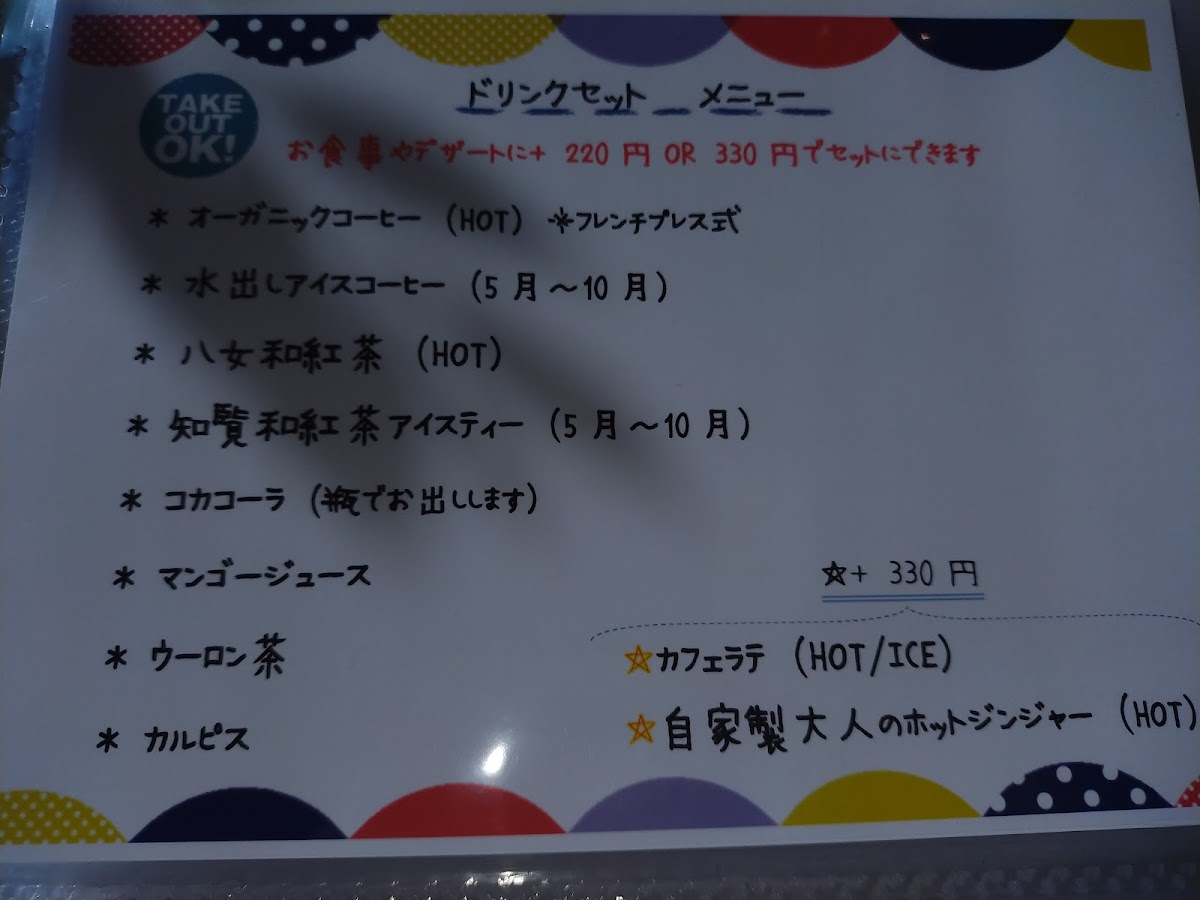 TAKE
OUT
OK!
ドリンクセット メニュー
お食事やデザートに+ 220 円 OR 330 円でセットにできます
* オーガニックコーヒー (HOT) ※フレンチプレス式
* 水出しアイスコーヒー (5 月～10 月)
* 八女和紅茶 (HOT)
* 知覧和紅茶アイスティー (5 月～10 月)
* コカコーラ (瓶でお出しします)
* マンゴージュース
* ウーロン茶
* カルピス
☆+ 330 円
☆カフェラテ (HOT/ICE)
☆自家製大人のホットジンジャー (HOT)